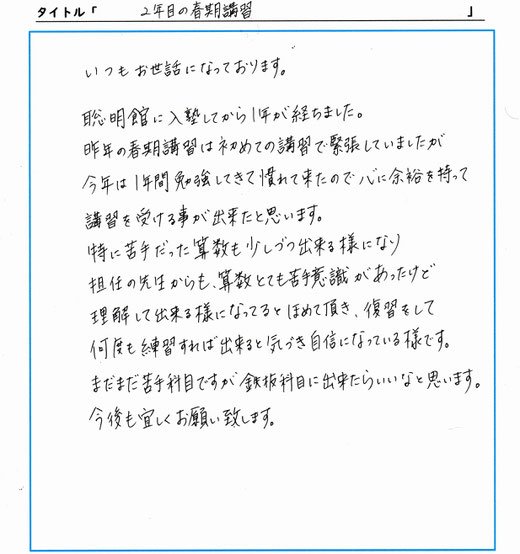 タイトル「 2年目の春期講習 」
いつもお世話になっております。
聡明館に入塾してから1年が経ちました。
昨年の春期講習は初めての講習で緊張していましたが
今年は1年間勉強してきて慣れて来たので心に余裕を持って
講習を受ける事が出来たと思います。
特に苦手だった算数も少しづつ出来る様になり
担任の先生からも、算数とても苦手意識があったけど
理解して出来る様になってるとほめて頂き、復習をして
何度も練習すれば出来ると気づき自信になっている様です。
まだまだ苦手科目ですが鉄板科目に出来たらいいなと思います。
今後も宜しくお願い致します。